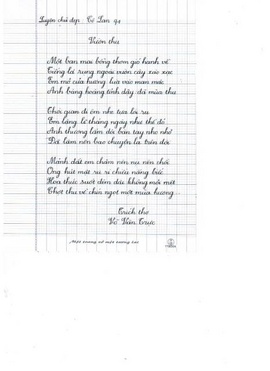 Luyện chữ đẹp
Vườn thu
Một ban mai bỗng thơm gió hanh về
Tiếng lá rụng ngoài vườn cây xào xạc
Em mở cửa hương lùa vào man mác
Anh bàng hoàng tỉnh dậy đã mùa thu
Thời quan đi êm như tựa lời ru
Em lặng lẽ tháng ngày như thế đó
Anh thương lắm đôi bàn tay nho nhỏ
Đã làm nên bao chuyện lạ trên đời
Mảnh đất em chăm nên nụ nên chồi
Ong hút mật su si chiều nắng bức
Hoa thức suốt đêm dài không mỏi mệt
Thơ thu về chín ngọt một mùi hương
Trích thơ
Võ Văn Trực